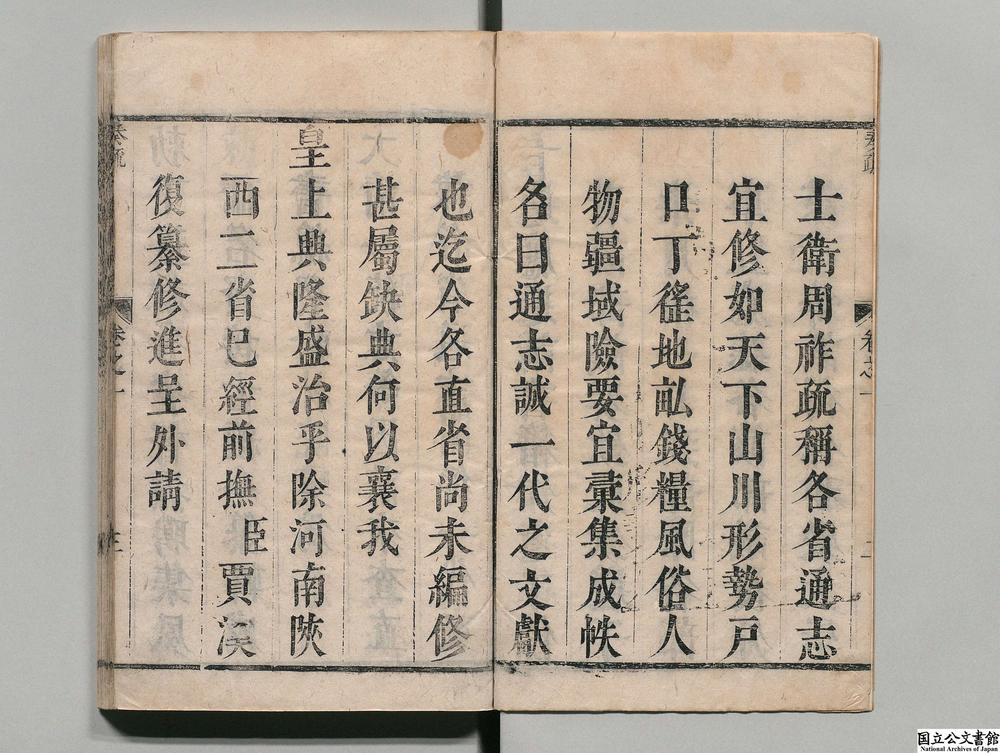 士衛周祚疏稱各省通志
宜修如天下山川形勢戸
口丁徭地畆錢糧風俗人
物疆域險要宜彚集成帙
名曰通志誠一代之文獻
也迄今各直省尚未編修
甚屬缺典何以襄我
皇上典隆盛治乎除河南陝
西二省已經前撫臣賈漢
復纂修進呈外請
奏疏
卷之一
國立公文書館
National Archives of Japan